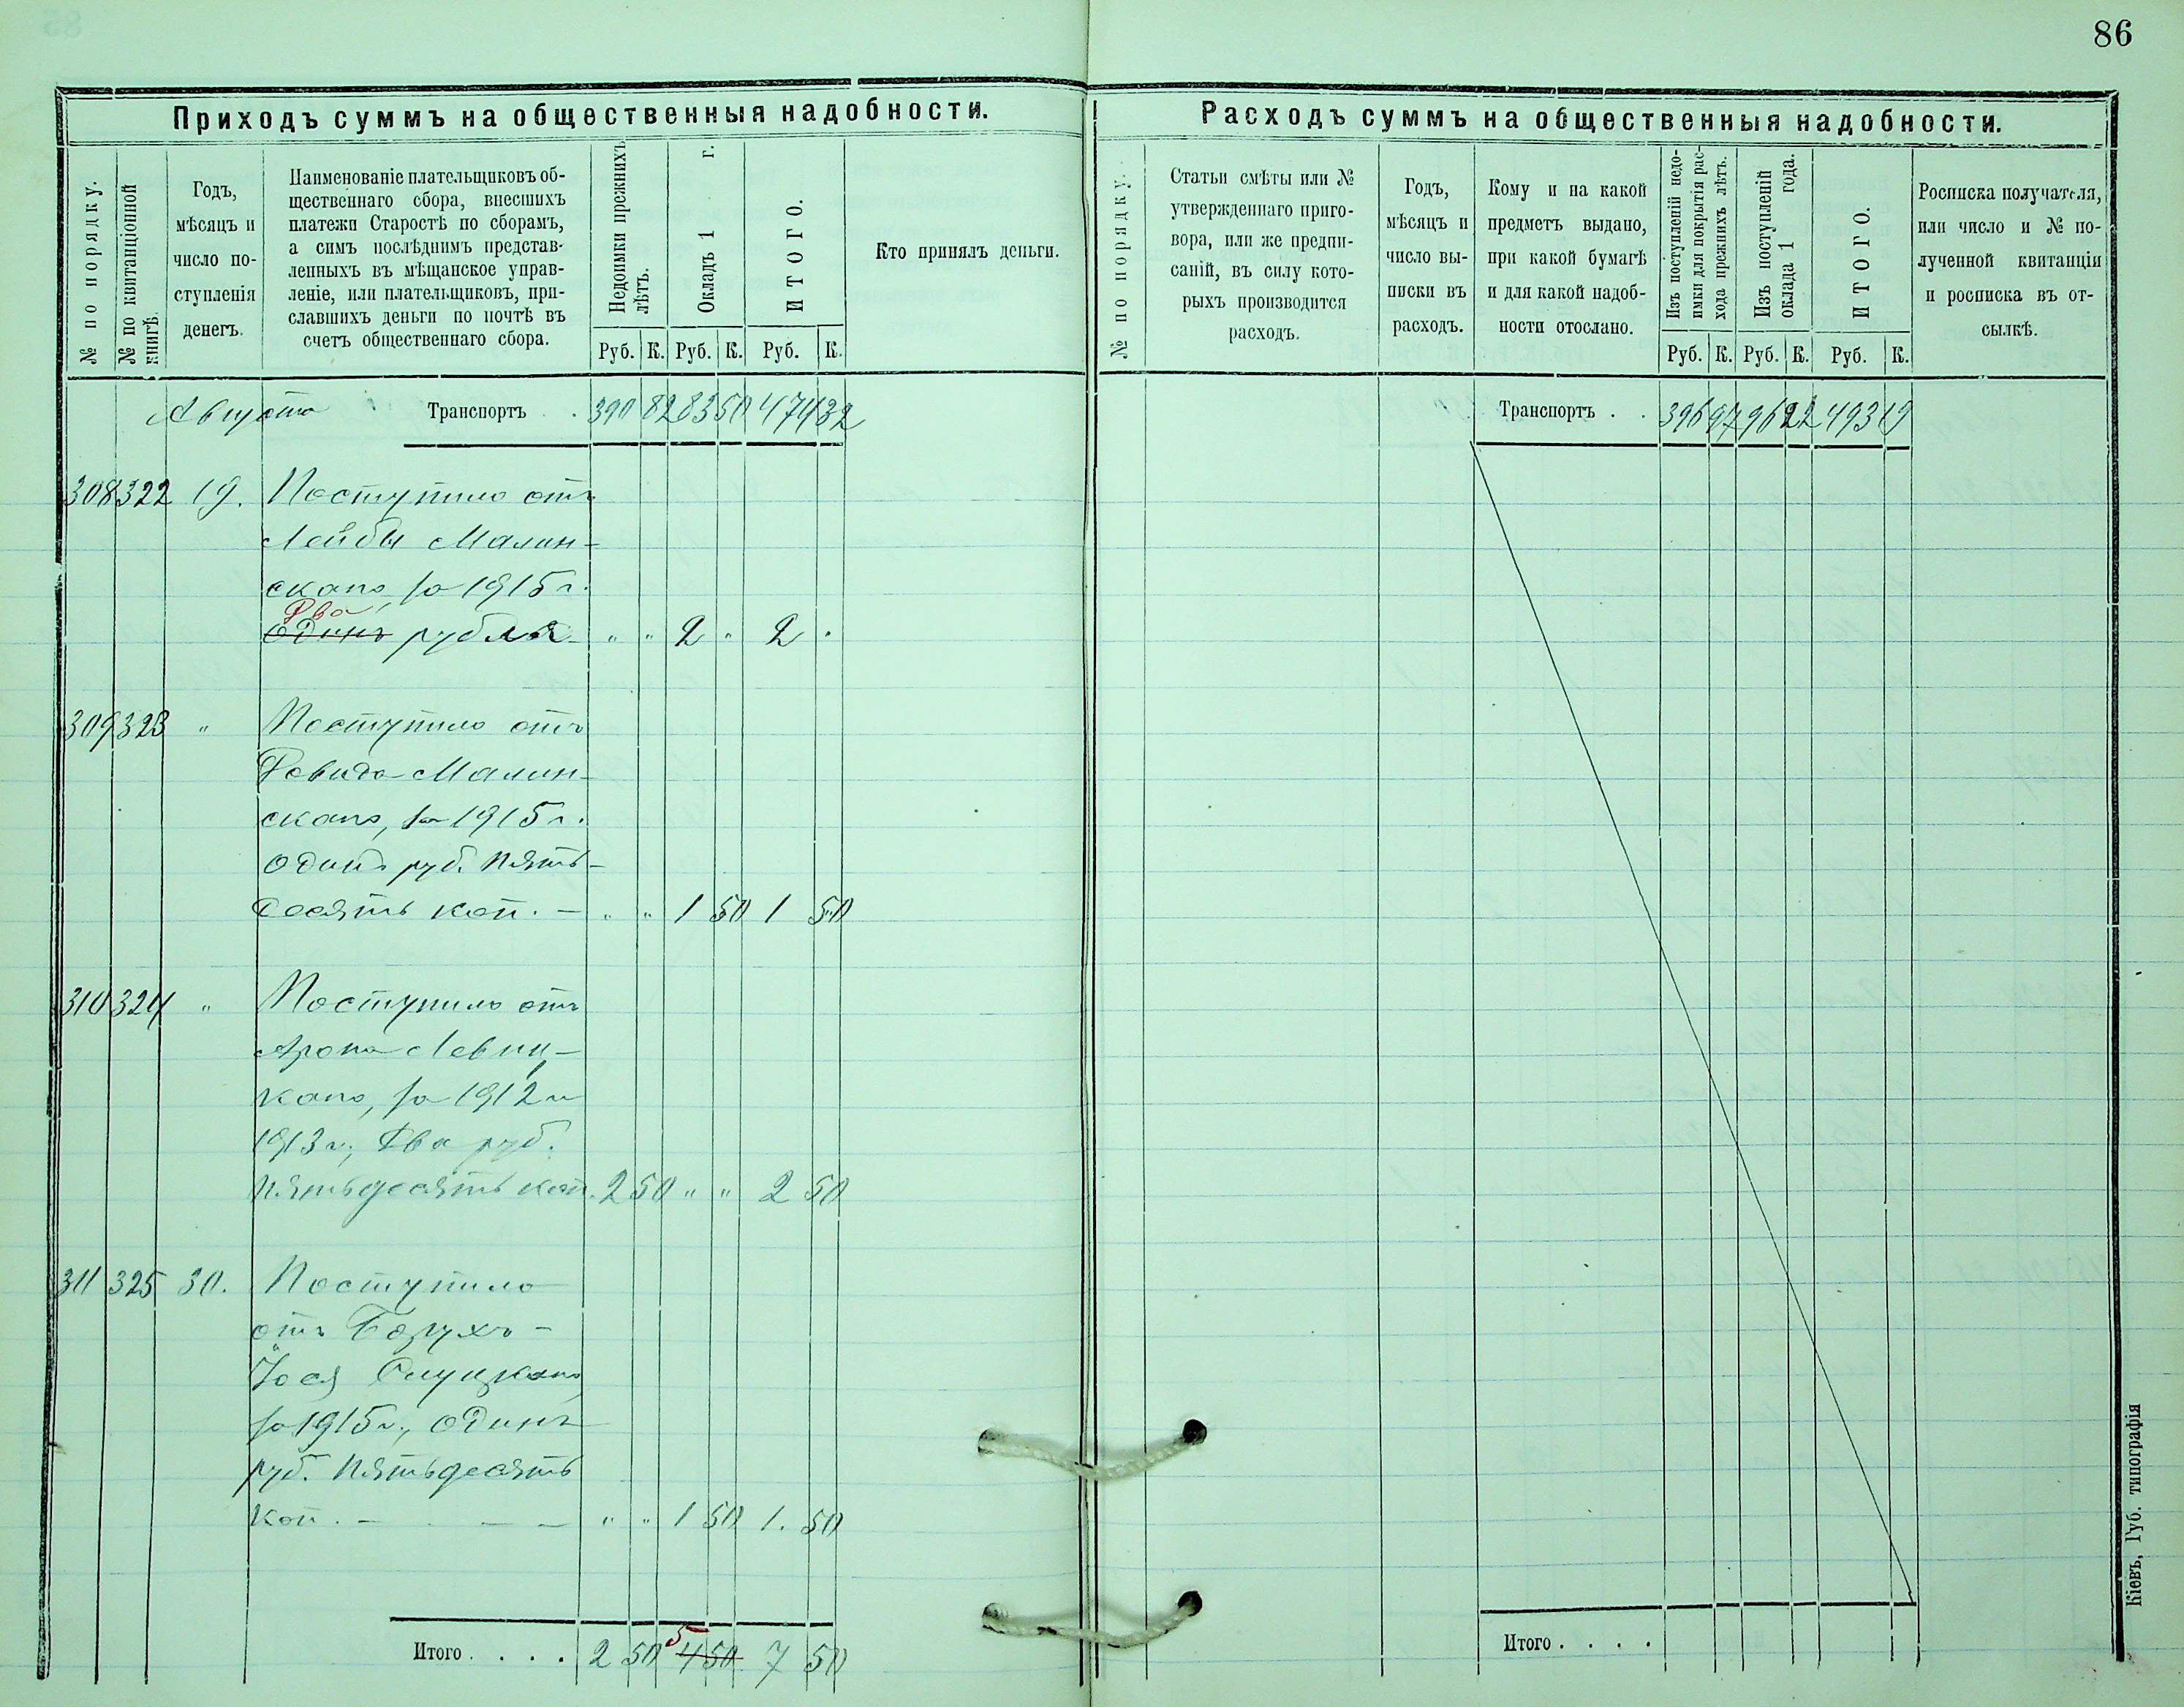 86
Приходъ суммъ на общественныя надобности.
№ по порядку.
№ по квитанціонной
книгѣ.
Годъ,
мѣсяцъ и
число по-
ступленія
денегъ.
Наименованіе плательщиковъ об-
щественнаго сбора, внесшихъ
платежи Старостѣ по сборамъ,
а симъ послѣднимъ представ-
ленныхъ въ мѣщанское управ-
леніе, или плательщиковъ, при-
славшихъ деньги по почтѣ въ
счетъ общественнаго сбора.
Недоимки прежнихъ
лѣтъ.
Окладъ 1 г.
ИТОГО.
Руб. К. Руб. К. Руб. К.
Кто принялъ деньги.
Августа Транспортъ . . 390 82 83 50 474 32
308 322 19. Поступило отъ
Лейбы Малин-
скаго, за 1915 г.
Два
Одинъ рубля " " 2 " 2 "
309 323 " Поступило отъ
Давида Малин-
скаго, за 1915 г.
Одинъ руб. пять-
десятъ коп. — " " 1 50 1 50
310 324 " Поступило отъ
Арона Левин-
скаго, за 1912 и
1913 г., Два руб.
Пятьдесятъ коп. 2 50 " " 2 50
311 325 30. Поступило
отъ Борухъ-
Іося Слуцкаго
за 1915 г., Одинъ
руб. Пятьдесятъ
коп. — — — " " 1 50 1. 50
5
Итого . . . . 2 50 4 50 7 50
Расходъ суммъ на общественныя надобности.
№ по порядку.
Статьи смѣты или №
утвержденнаго приго-
вора, или же предпи-
саній, въ силу кото-
рыхъ производится
расходъ.
Годъ,
мѣсяцъ и
число вы-
писки въ
расходъ.
Кому и на какой
предметъ выдано,
при какой бумагѣ
и для какой надоб-
ности отослано.
Изъ поступленій недо-
имки для покрытія рас-
хода прежнихъ лѣтъ.
Изъ поступленій
оклада 1 года.
ИТОГО.
Руб. К. Руб. К. Руб. К.
Росписка получателя,
или число и № по-
лученной квитанціи
и росписка въ от-
сылкѣ.
Транспортъ . . 396 97 96 22 493 19
Итого . . . .
Кіевъ, Губ. типографія